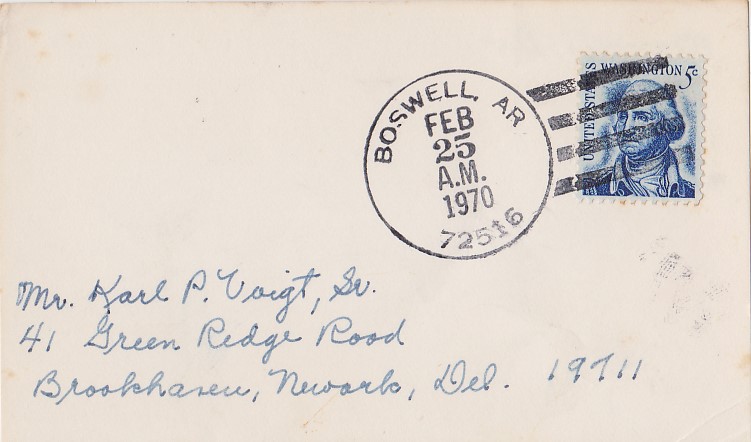 BOSWELL, AR
FEB
25
A.M.
1970
72516
UNITED STATES
WASHINGTON 5c
Mr. Karl P. Voigt, Sr.
41 Green Ridge Road
Brookhaven, Newark, Del. 19711